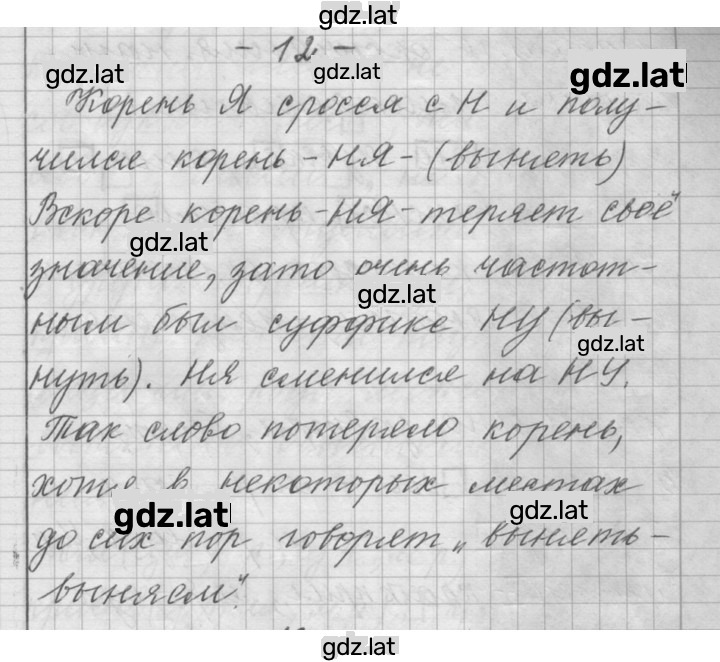 gdz.lat
- 12. -
gdz.lat
gdz.lat
gdz.lat
Корень Я сросся с Н и полу-
чился корень -НЯ- (вынять)
Вскоре корень -НЯ- теряет своё
gdz.lat
значение, зато очень частот-
gdz.lat
ным был суффикс НУ (вы-
gdz.lat
нуть). НЯ сменился на НУ.
Так слово потеряло корень,
хотя в некоторых местах
gdz.lat
gdz.lat
до сих пор говорят „вынять-
выням".
gdz.lat